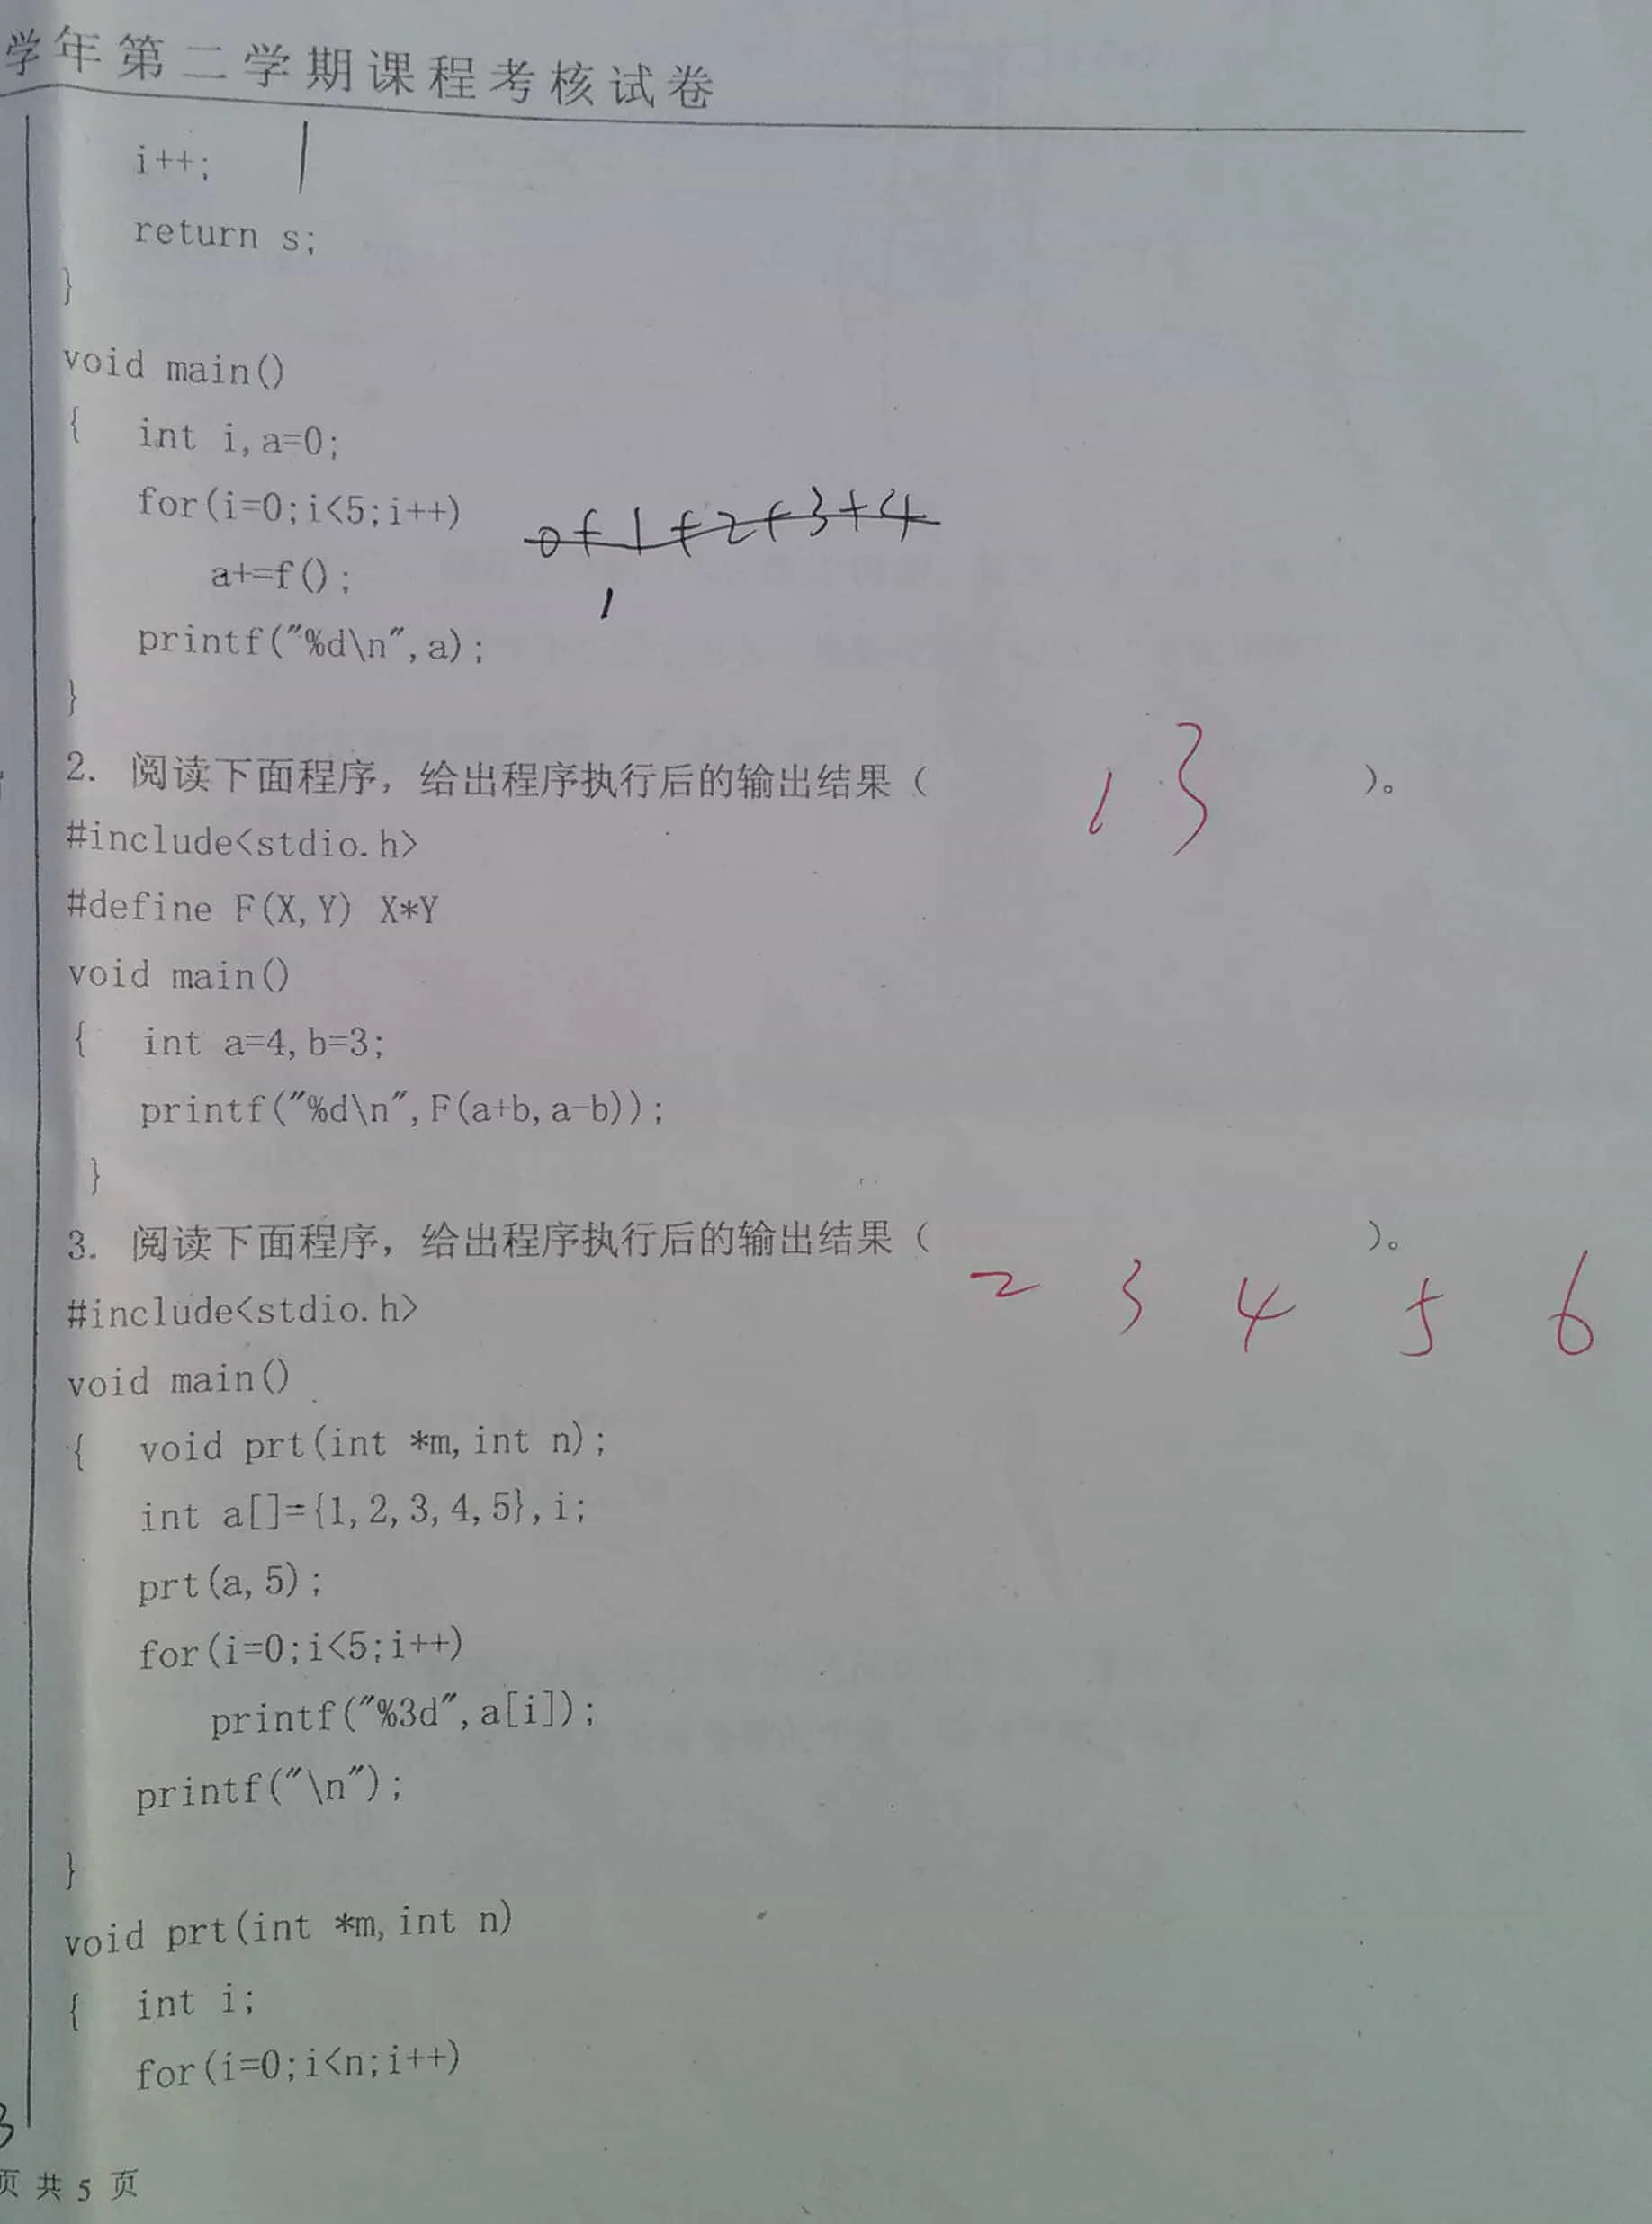 学年第二学期课程考核试卷
i++;
return s;
}
void main()
{ int i,a=0;
for(i=0;i<5;i++)
0+1+2+3+4
a+=f();
1
printf("%d\n",a);
}
2. 阅读下面程序，给出程序执行后的输出结果（ 13 ）。
#include<stdio.h>
#define F(X,Y) X*Y
void main()
{ int a=4,b=3;
printf("%d\n",F(a+b,a-b));
}
3. 阅读下面程序，给出程序执行后的输出结果（ ）。
2 3 4 5 6
#include<stdio.h>
void main()
{ void prt(int *m,int n);
int a[]={1,2,3,4,5},i;
prt(a,5);
for(i=0;i<5;i++)
printf("%3d",a[i]);
printf("\n");
}
void prt(int *m,int n)
{ int i;
for(i=0;i<n;i++)
3
页 共 5 页